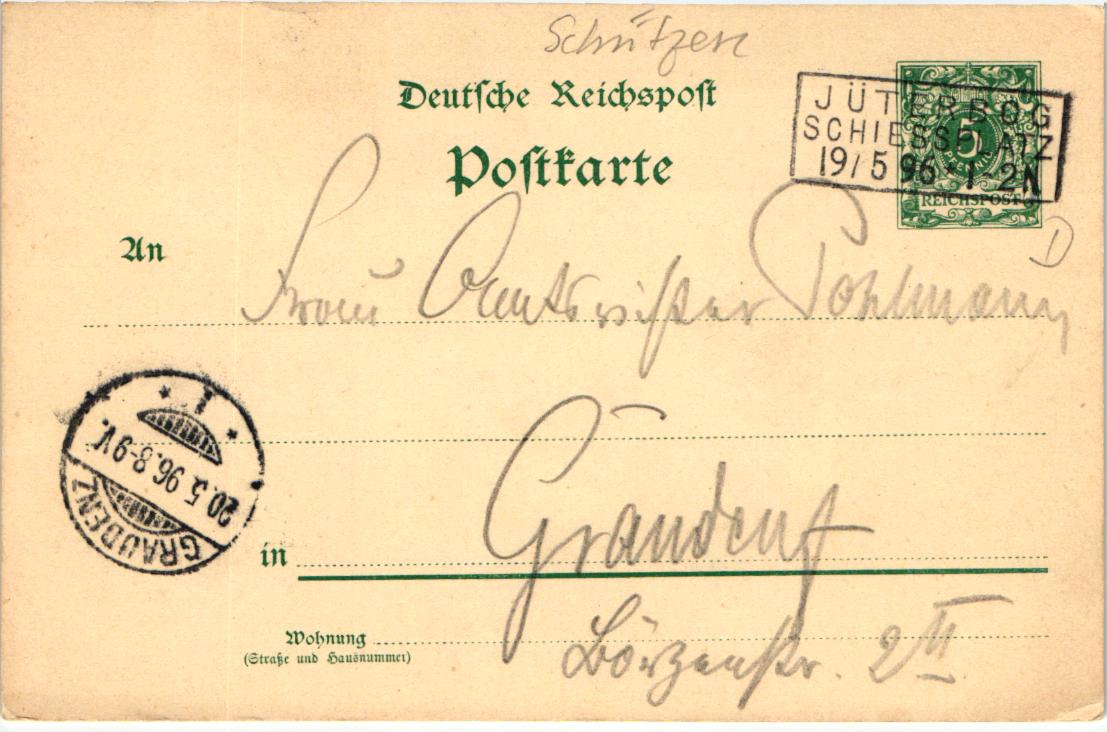 Schützen
Deutsche Reichspost
Postkarte
JÜTERBOG
SCHIESSPLATZ
19/5 96 * 1 2N
5
PFENNIG
REICHSPOST
D
An
Frau Pohlmann
GRAUDENZ
20.5.96.8-9V.
* 1 *
in
Graudenz
Wohnung
(Straße und Hausnummer)
Börgenstr. 2 II